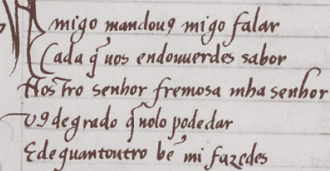 Amigo mandouꝯ migo falar
Cada q̃ uos endouuerdes sabor
Nostro senhor fremosa mha senhor
Vꝯ degrado q̃uolo podedar
Edequantoutro bẽ mi fazedes